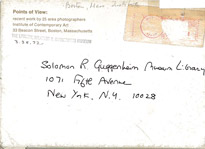 Points of View:
recent work by 35 area photographers
Institute of Contemporary Art
33 Beacon Street, Boston, Massachusetts
Solomon R. Guggenheim Museum Library
1071 Fifth Avenue
New York, N.Y. 10028